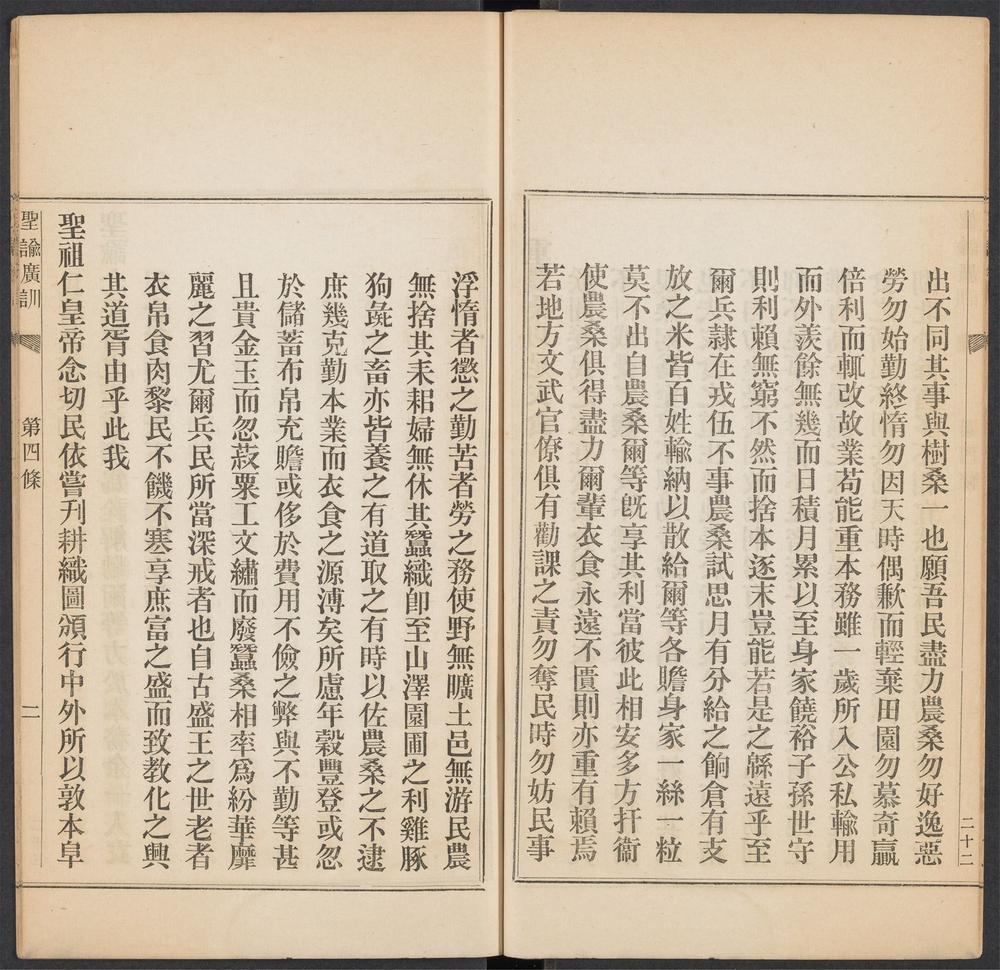 二十二
出不同其事與樹桑一也願吾民盡力農桑勿好逸惡
勞勿始勤終惰勿因天時偶歉而輕棄田園勿慕奇贏
倍利而輒改故業苟能重本務雖一歲所入公私輸用
而外羨餘無幾而日積月累以至身家饒裕子孫世守
則利賴無窮不然而捨本逐末豈能若是之緜遠乎至
爾兵隸在戎伍不事農桑試思月有分給之餉倉有支
放之米皆百姓輸納以散給爾等各贍身家一絲一粒
莫不出自農桑爾等旣享其利當彼此相安多方扞衞
使農桑俱得盡力爾輩衣食永遠不匱則亦重有賴焉
若地方文武官僚俱有勸課之責勿奪民時勿妨民事
浮惰者懲之勤苦者勞之務使野無曠土邑無游民農
無捨其耒耜婦無休其蠶織卽至山澤園圃之利雞豚
狗彘之畜亦皆養之有道取之有時以佐農桑之不逮
庶幾克勤本業而衣食之源溥矣所慮年穀豐登或忽
於儲蓄布帛充贍或侈於費用不儉之弊與不勤等甚
且貴金玉而忽菽粟工文繡而廢蠶桑相率爲紛華靡
麗之習尤爾兵民所當深戒者也自古盛王之世老者
衣帛食肉黎民不饑不寒享庶富之盛而致教化之興
其道胥由乎此我
聖祖仁皇帝念切民依嘗刋耕織圖頒行中外所以敦本阜
聖諭廣訓 第四條 二